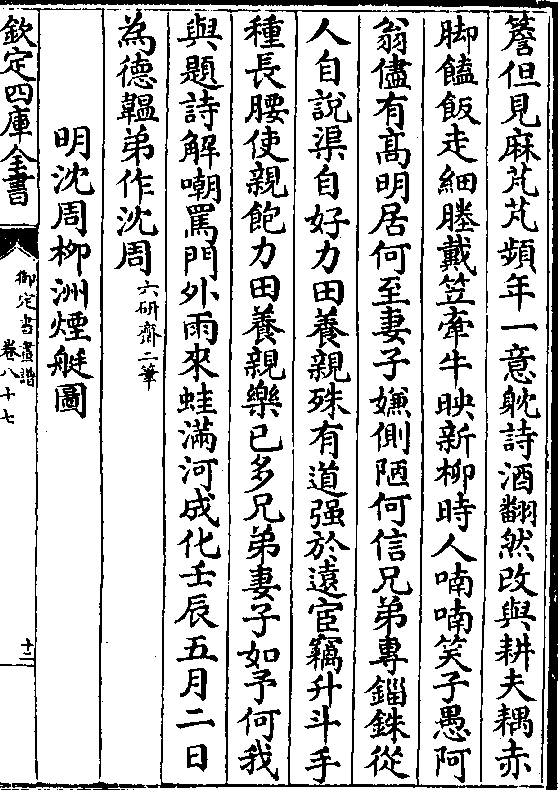 簷但見麻芃芃頻年一意躭詩酒翻然改與耕夫耦赤
脚饁飯走細塍戴笠牽牛映新柳時人喃喃笑子愚阿
翁儘有髙明居何至妻子嫌側陋何信兄弟專錙銖從
人自說渠自好力田養親殊有道强於逺宦竊升斗手
種長腰使親飽力田養親樂已多兄弟妻子如予何我
與題詩解嘲罵門外雨來蛙滿河成化壬辰五月二日
為德韞弟作沈周六研齋二筆
明沈周柳洲煙艇圖
欽定四庫全書
御定書畫譜
卷八十七
十二